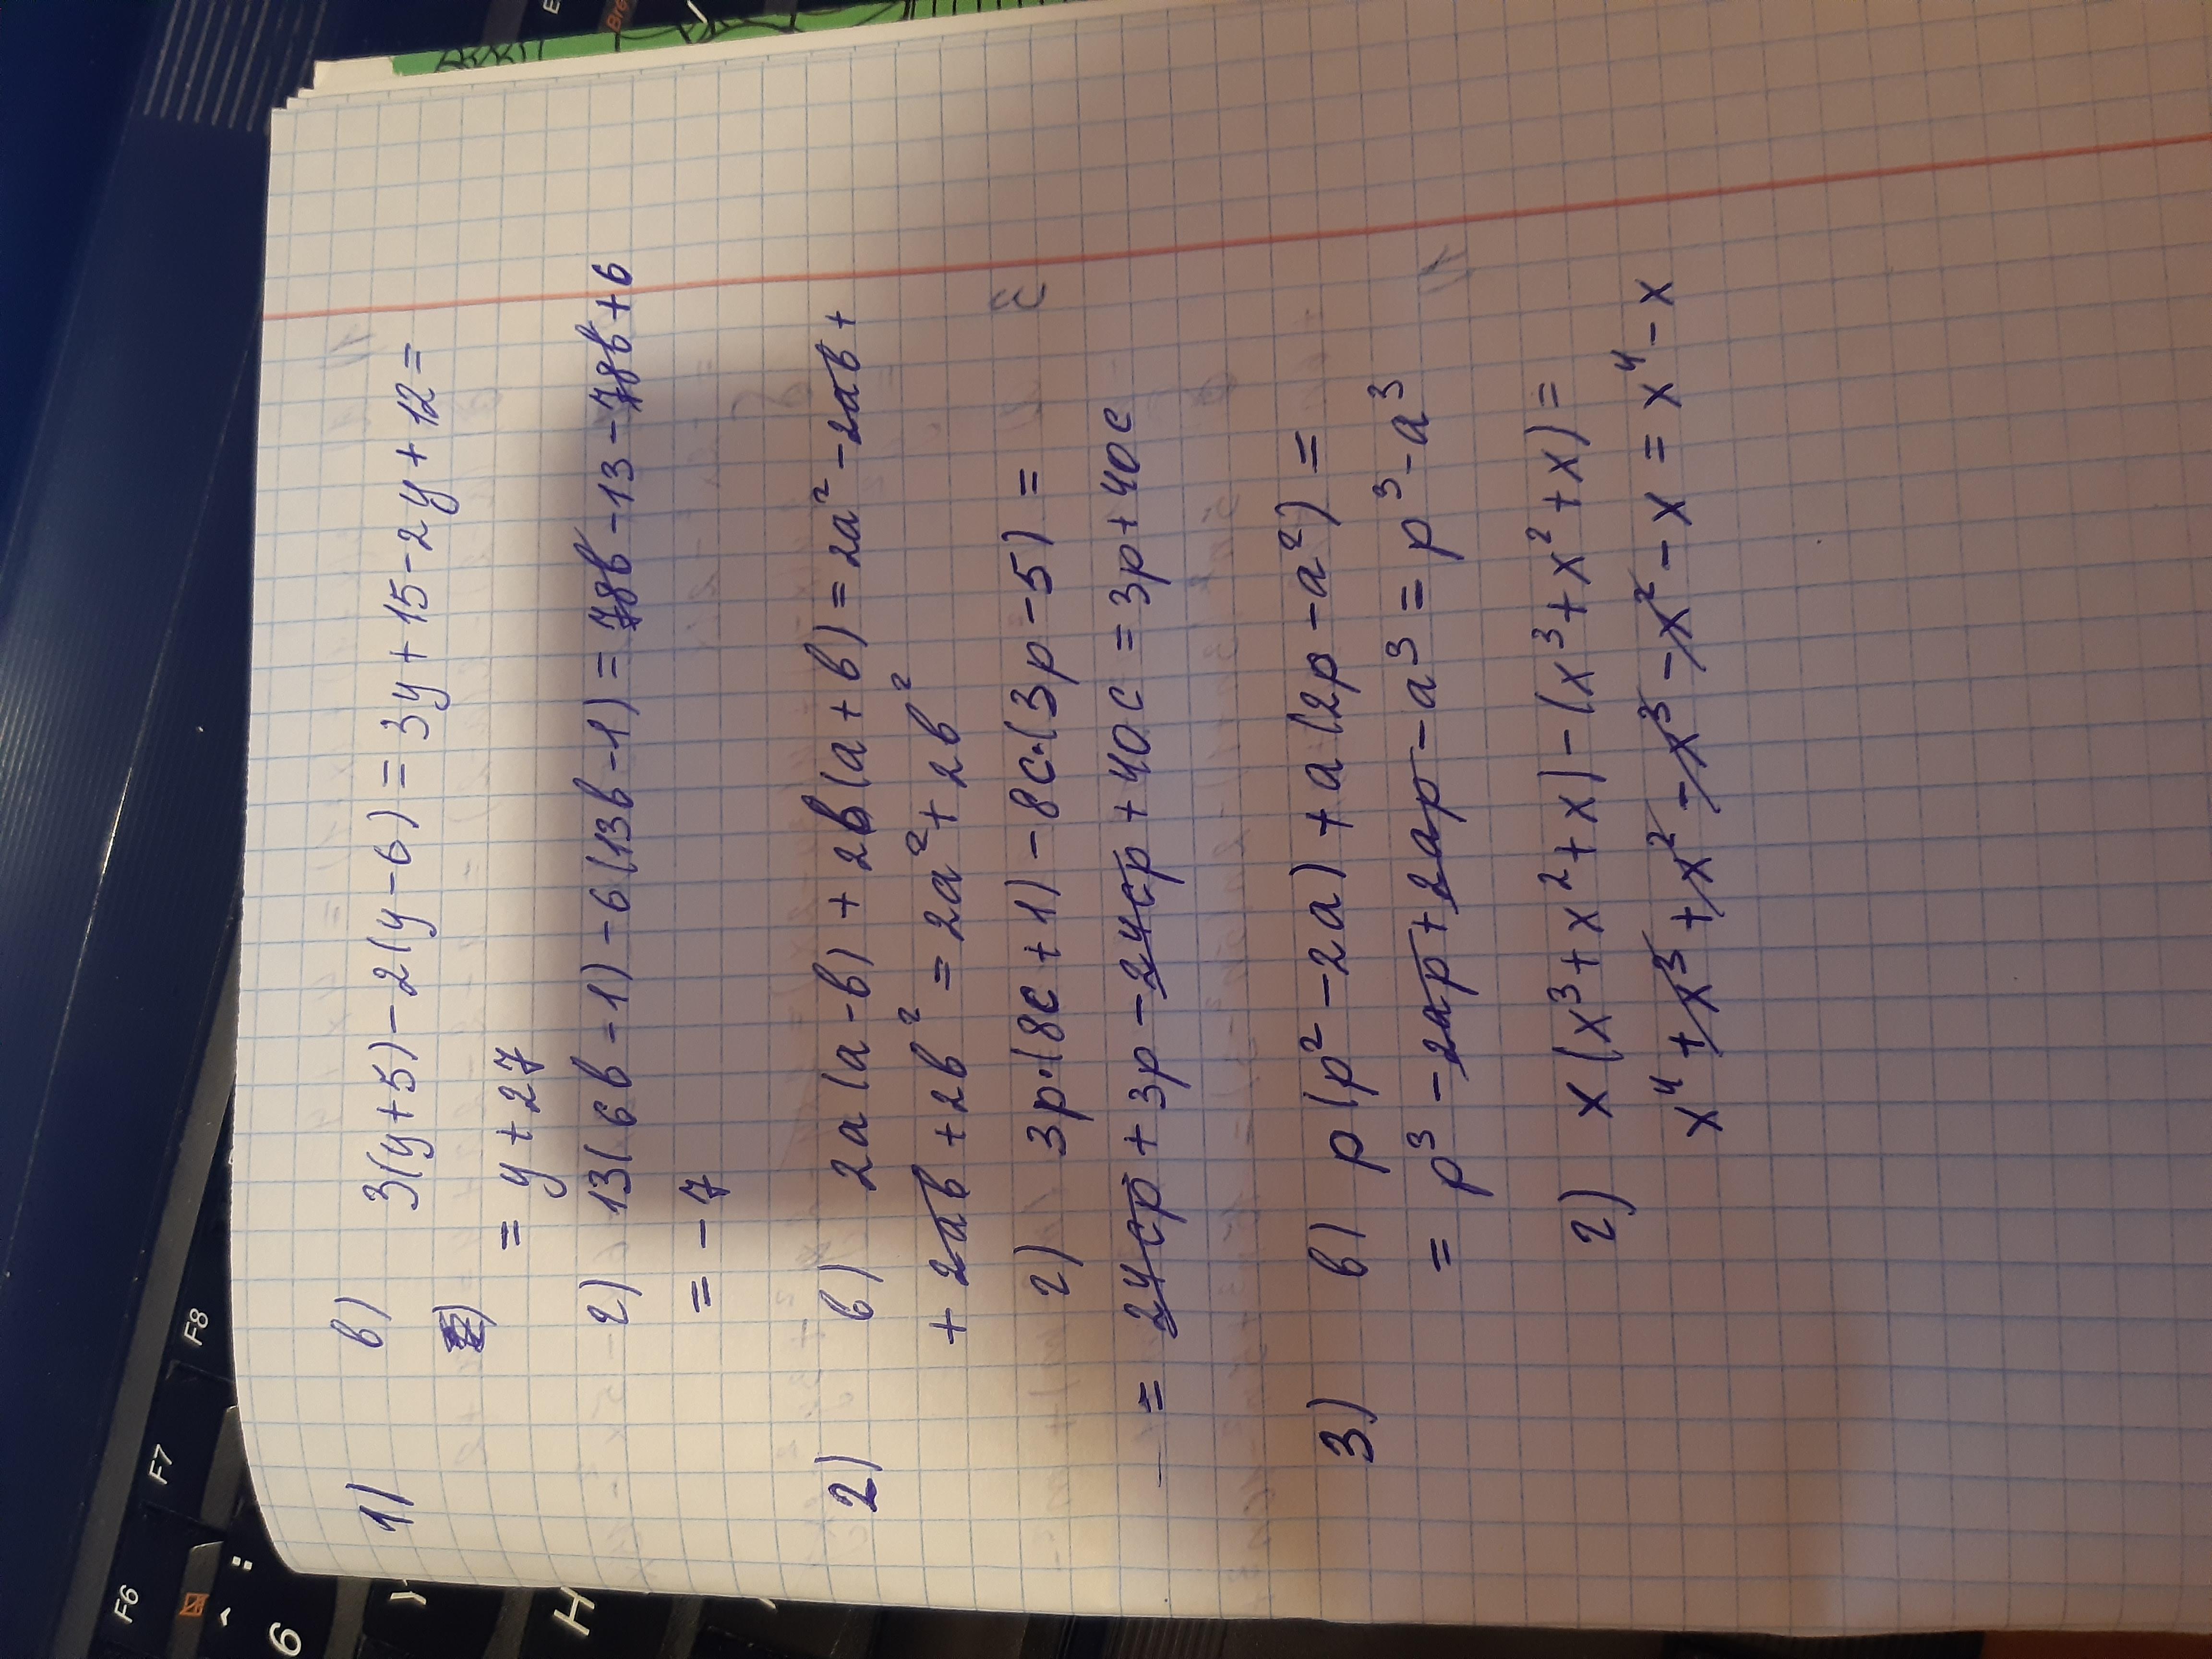 1) в) 3(y+5)-2(y-6) = 3y+15-2y+12=
= y+27
г) 13(6в-1)-6(13в-1) = 78в-13-78в+6
= -7
2) в) 2a(a-в)+2в(a+в) = 2a²-2aв+
+2aв+2в² = 2a²+2в²
г) 3p·(8c+1)-8c·(3p-5) =
= 24cp+3p-24cp+40c = 3p+40c
3) в) p(p²-2a)+a(2p-a²) =
= p³-2ap+2ap-a³ = p³-a³
г) x(x³+x²+x)-(x³+x²+x) =
x⁴+x³+x²-x³-x²-x = x⁴-x
F6
F7
F8
6
:
H